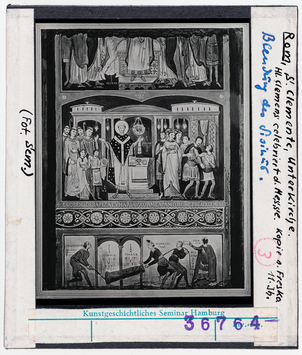 Rom, S. Clemente, Unterkirche.
Hl. Clemens celebriert d. Messe. Kopie n. Freske
11. Jh.
Blendung des Sisinus.
3
(Fot. Stem.)
Kunstgeschichtliches Seminar Hamburg
36764